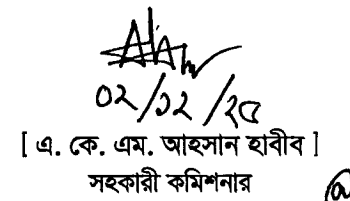 ০২/১২/২০
[ এ. কে. এম. আহসান হাবীব ]
সহকারী কমিশনার